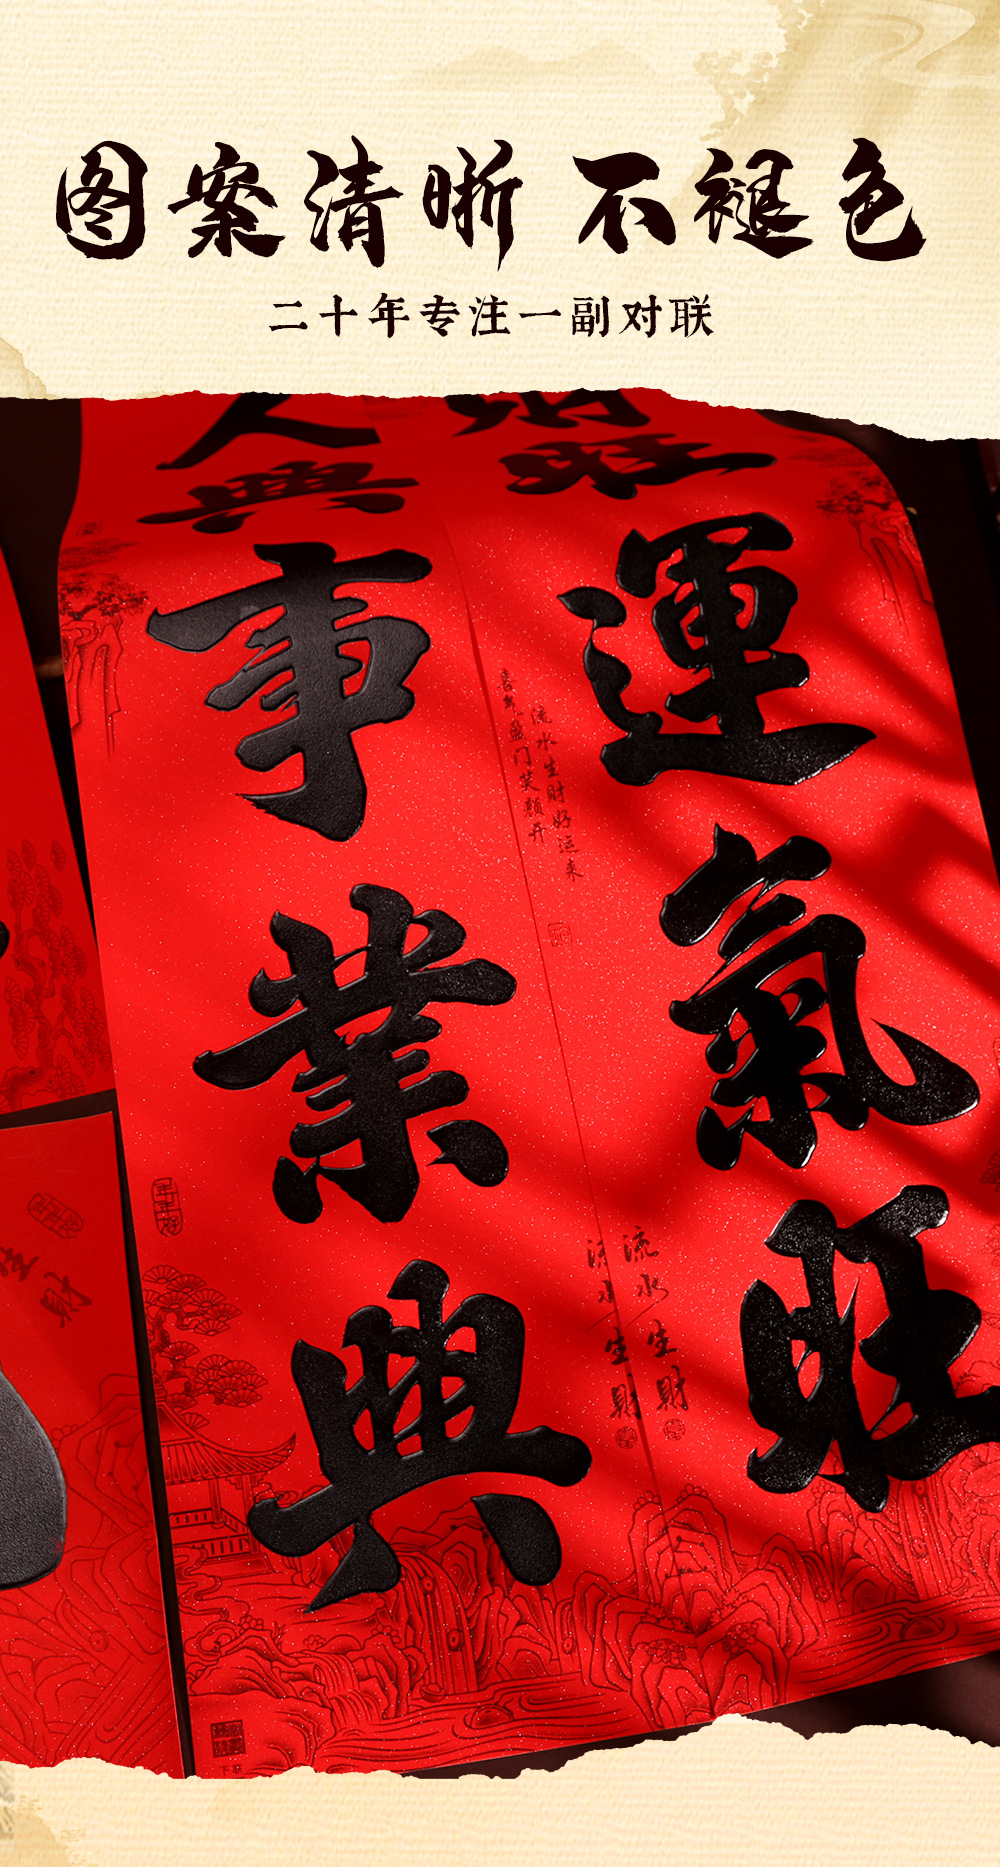 图案清晰 不褪色
二十年专注一副对联
财旺運氣旺
人興事業興
流水生财好运来
喜气盈门笑颜开
流水生财
流水生财
年年好
下联